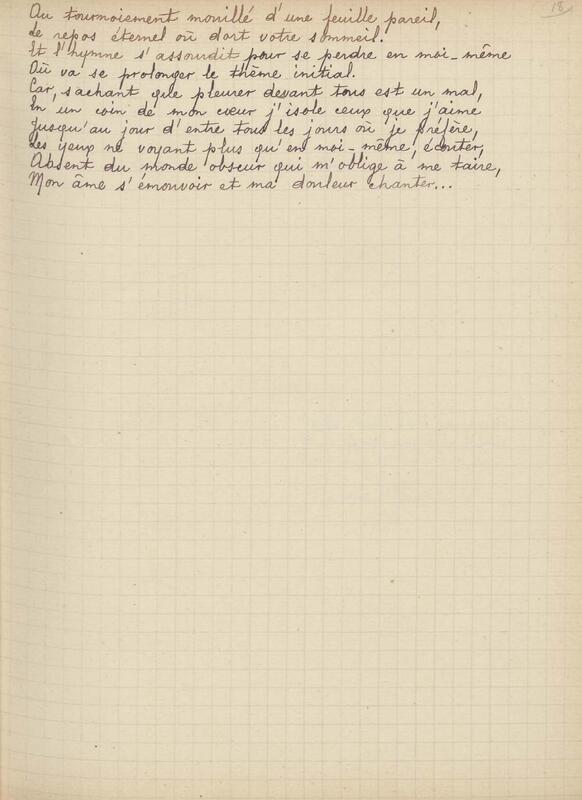 18
Au tournoiement mouillé d'une feuille pareil,
de repos éternel où dort votre sommeil.
Et l'hymne s'assourdit pour se perdre en moi-même
Où va se prolonger le thème initial.
Car, sachant que pleurer devant tous est un mal,
En un coin de mon cœur j'isole ceux que j'aime
Jusqu'au jour d'entre tous les jours où je préfère,
Les yeux ne voyant plus qu'en moi-même, écouter,
Absent du monde obscur qui m'oblige à me taire,
Mon âme s'émouvoir et ma douleur chanter...